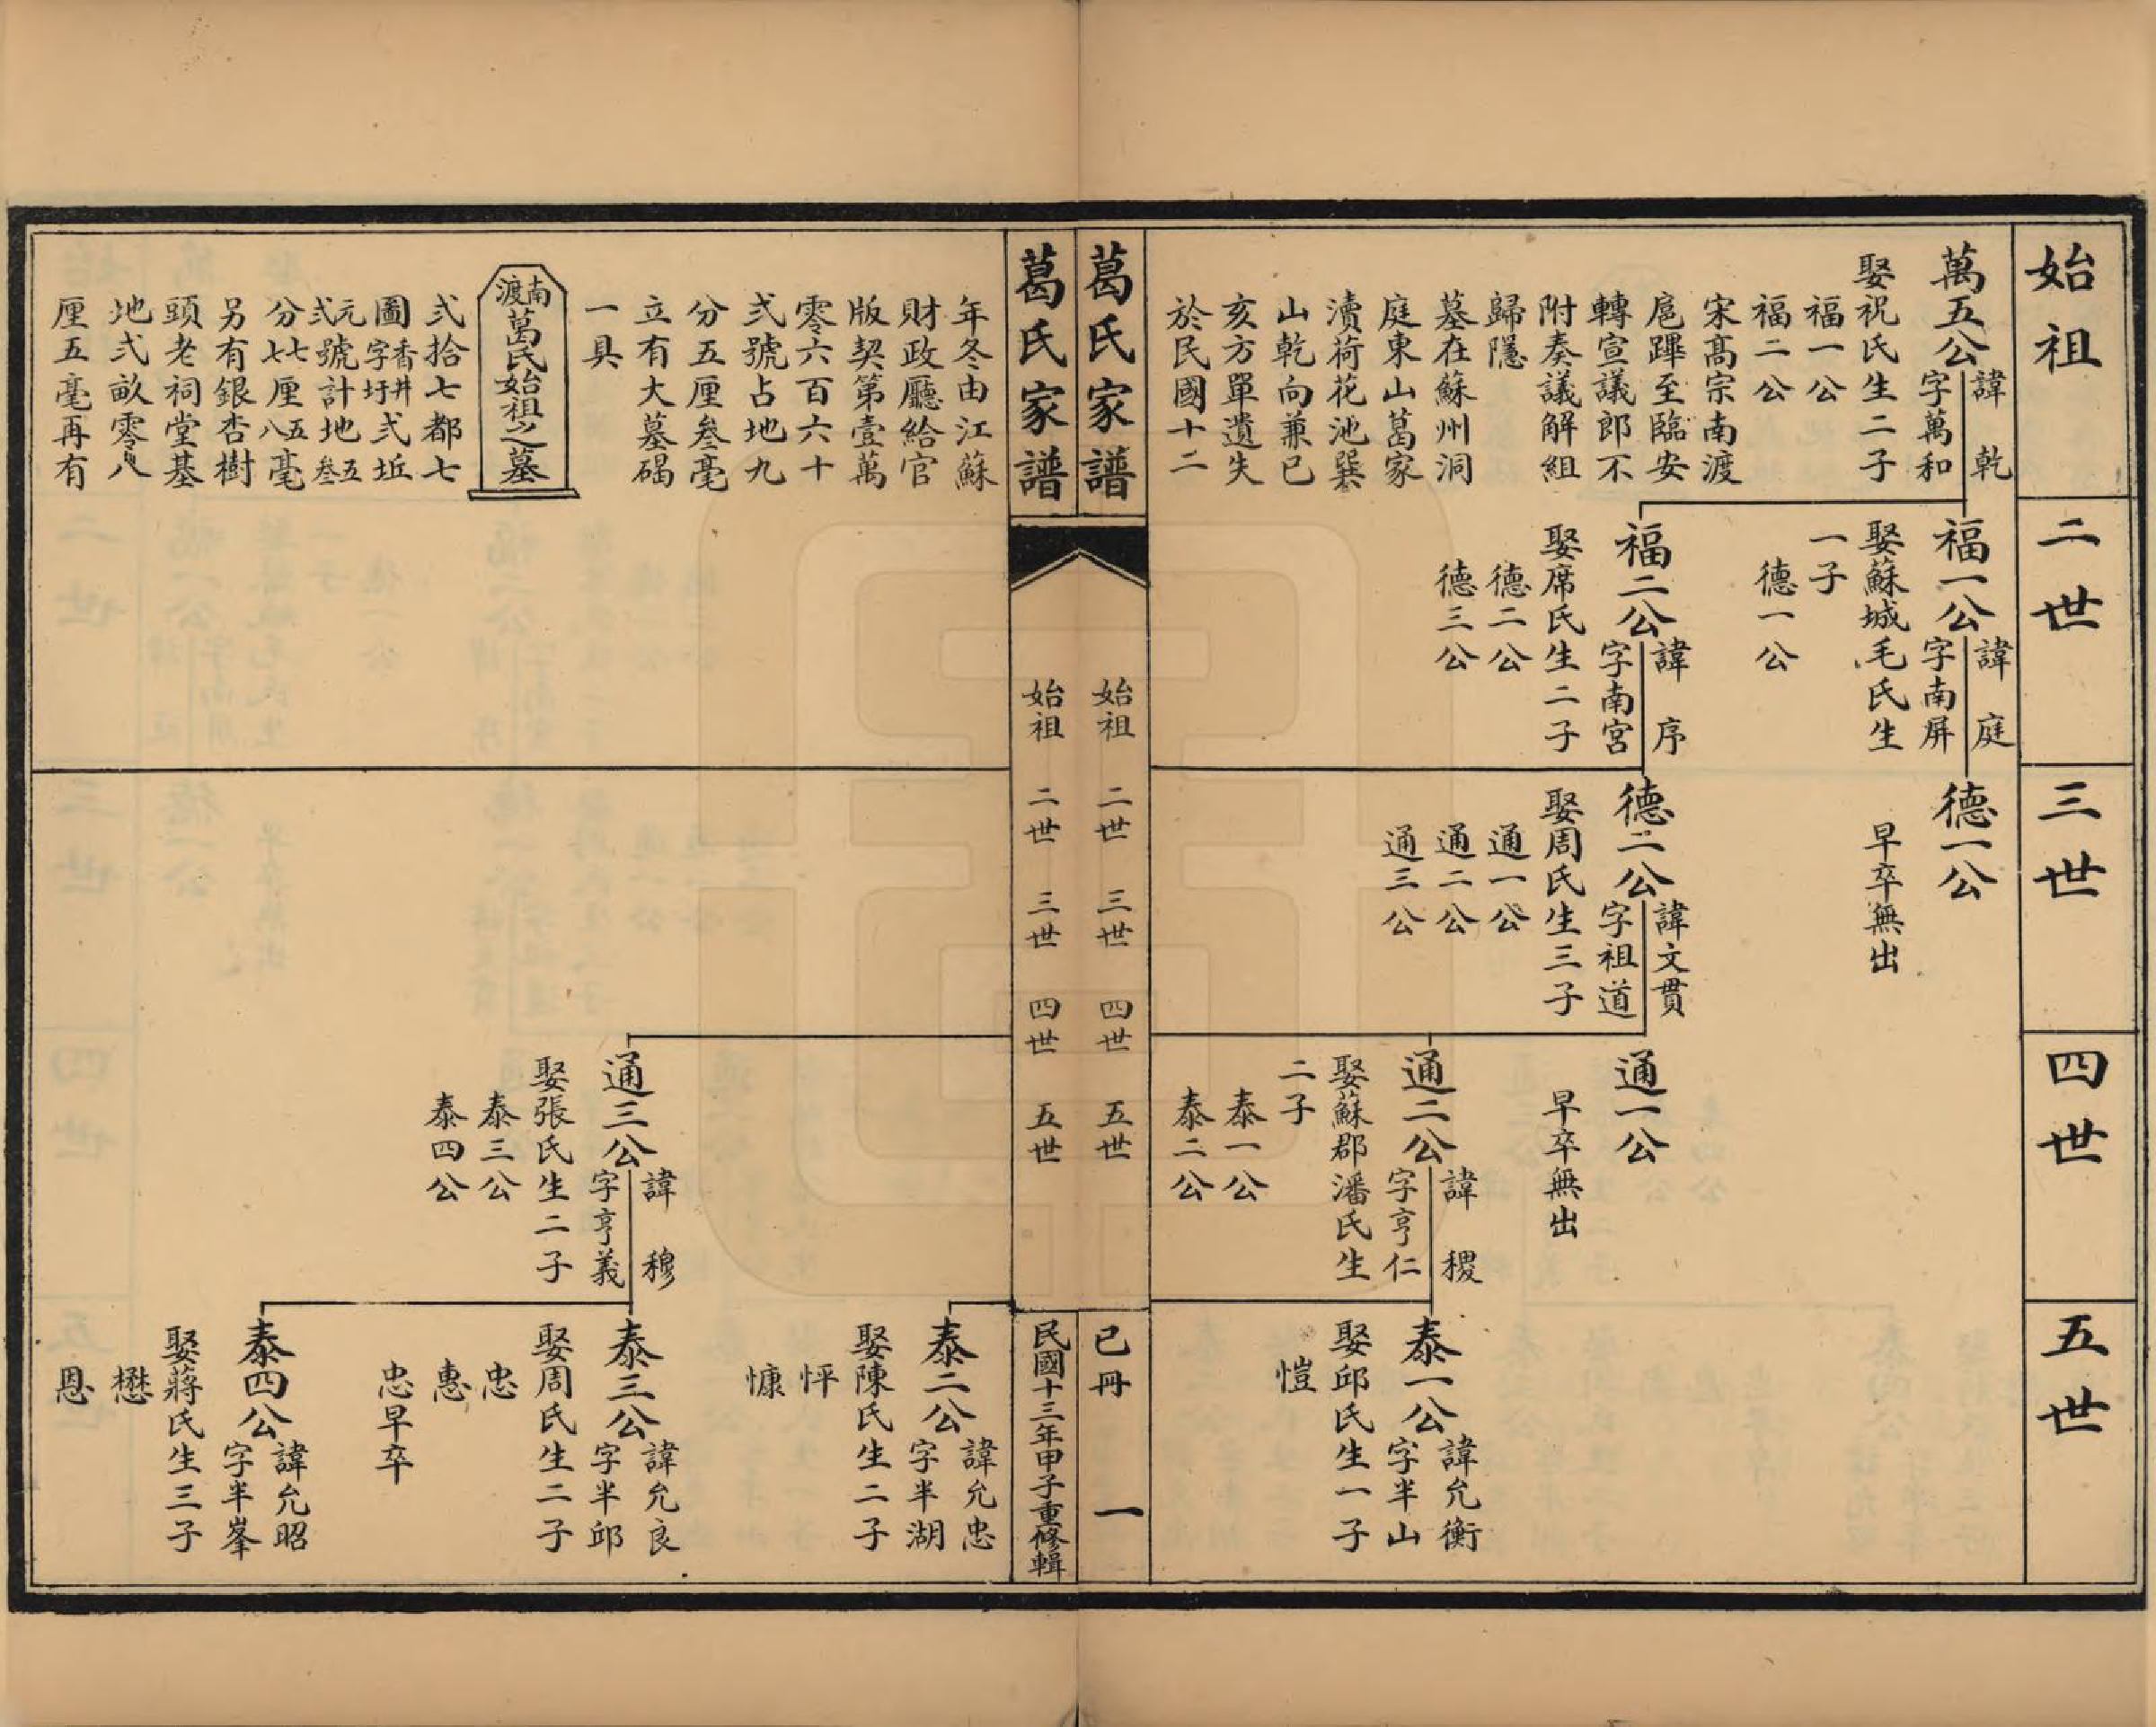 始祖
萬五公
諱乾
字萬和
娶祝氏生二子
福一公
福二公
宋髙宗南渡
扈蹕至臨安
轉宣議郎不
附奏議解組
歸隱
墓在蘇州洞
庭東山葛家
瀆荷花池巽
山乾向兼巳
亥方單遺失
於民國十二
二世
福一公
諱庭
字南屏
娶蘇城毛氏生
一子
德一公
福二公
諱序
字南宮
娶席氏生二子
德二公
德三公
三世
德一公
早卒無出
德二公
諱文貫
字祖道
娶周氏生三子
通一公
通二公
通三公
四世
通一公
早卒無出
通二公
諱稷
字亨仁
娶蘇郡潘氏生
二子
泰一公
泰二公
五世
泰一公
諱允衡
字半山
娶邱氏生一子
愷
葛氏家譜
始祖 二世 三世 四世 五世
已冊
一
葛氏家譜
始祖 二世 三世 四世 五世
民國十三年甲子重修輯
年冬由江蘇
財政廳給官
版契第壹萬
零六百六十
弍號占地九
分五厘叁毫
立有大墓碣
一具
南渡葛氏始祖之墓
弍拾七都七
圖香字井圩弍坵
元弍號計地五叁
分七七厘五八毫
另有銀杏樹
頭老祠堂基
地弍畝零八
厘五毫再有
通三公
諱穆
字亨義
娶張氏生二子
泰三公
泰四公
泰二公
諱允忠
字半湖
娶陳氏生二子
怦
慷
泰三公
諱允良
字半邱
娶周氏生二子
忠
惠
忠早卒
泰四公
諱允昭
字半峯
娶蔣氏生三子
懋
恩